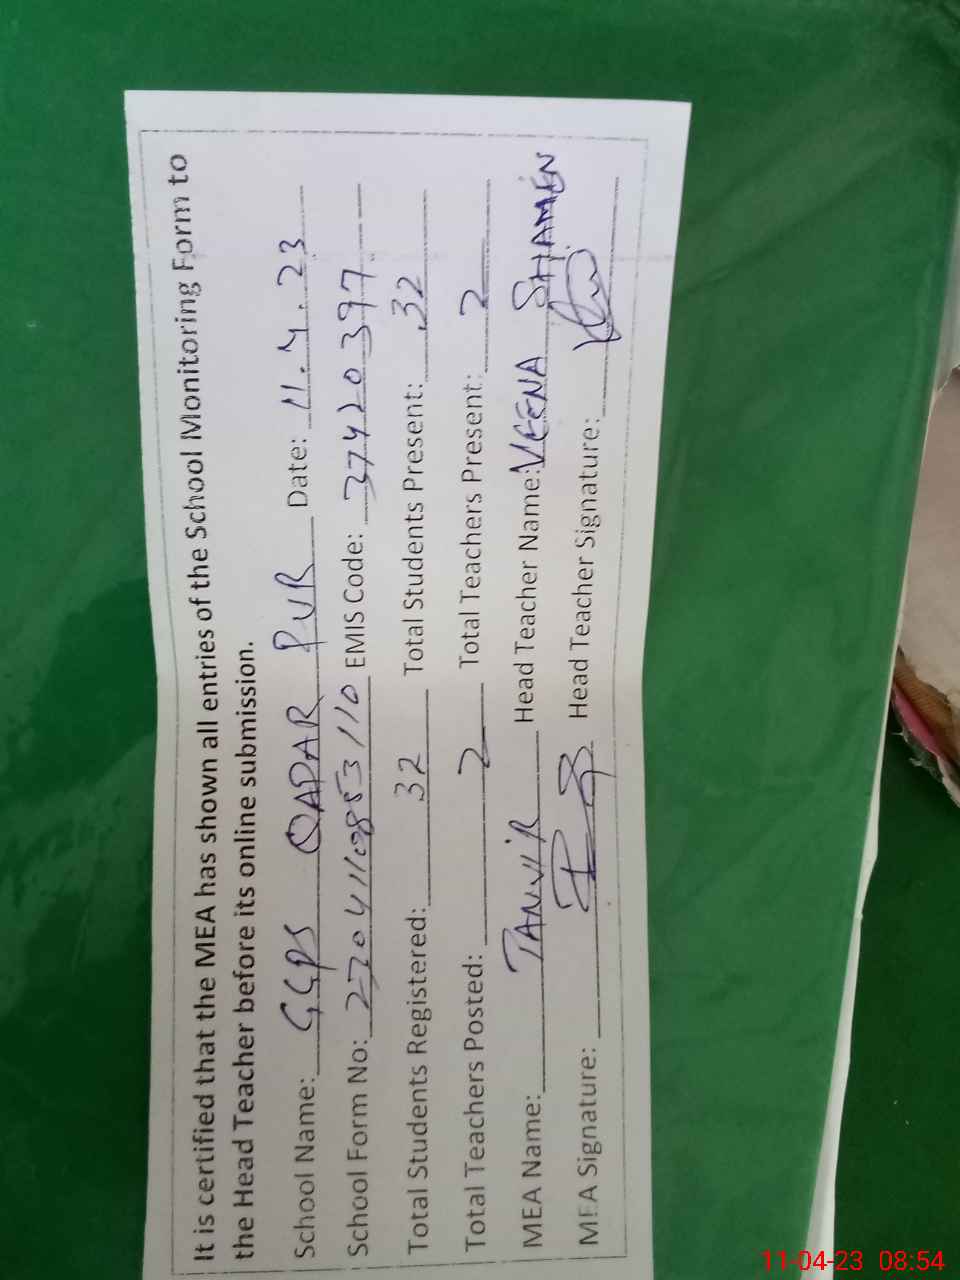 It is certified that the MEA has shown all entries of the School Monitoring Form to
the Head Teacher before its online submission.
School Name: GGPS QAPAR PUR Date: 11.4.23
School Form No: EMIS Code: 37420397
Total Students Registered: 32 Total Students Present: 32
Total Teachers Posted: 2 Total Teachers Present: 2
MEA Name: TANVIR Head Teacher Name: VEENA SHAMEN
MEA Signature: Head Teacher Signature:
11-04-23 08:54